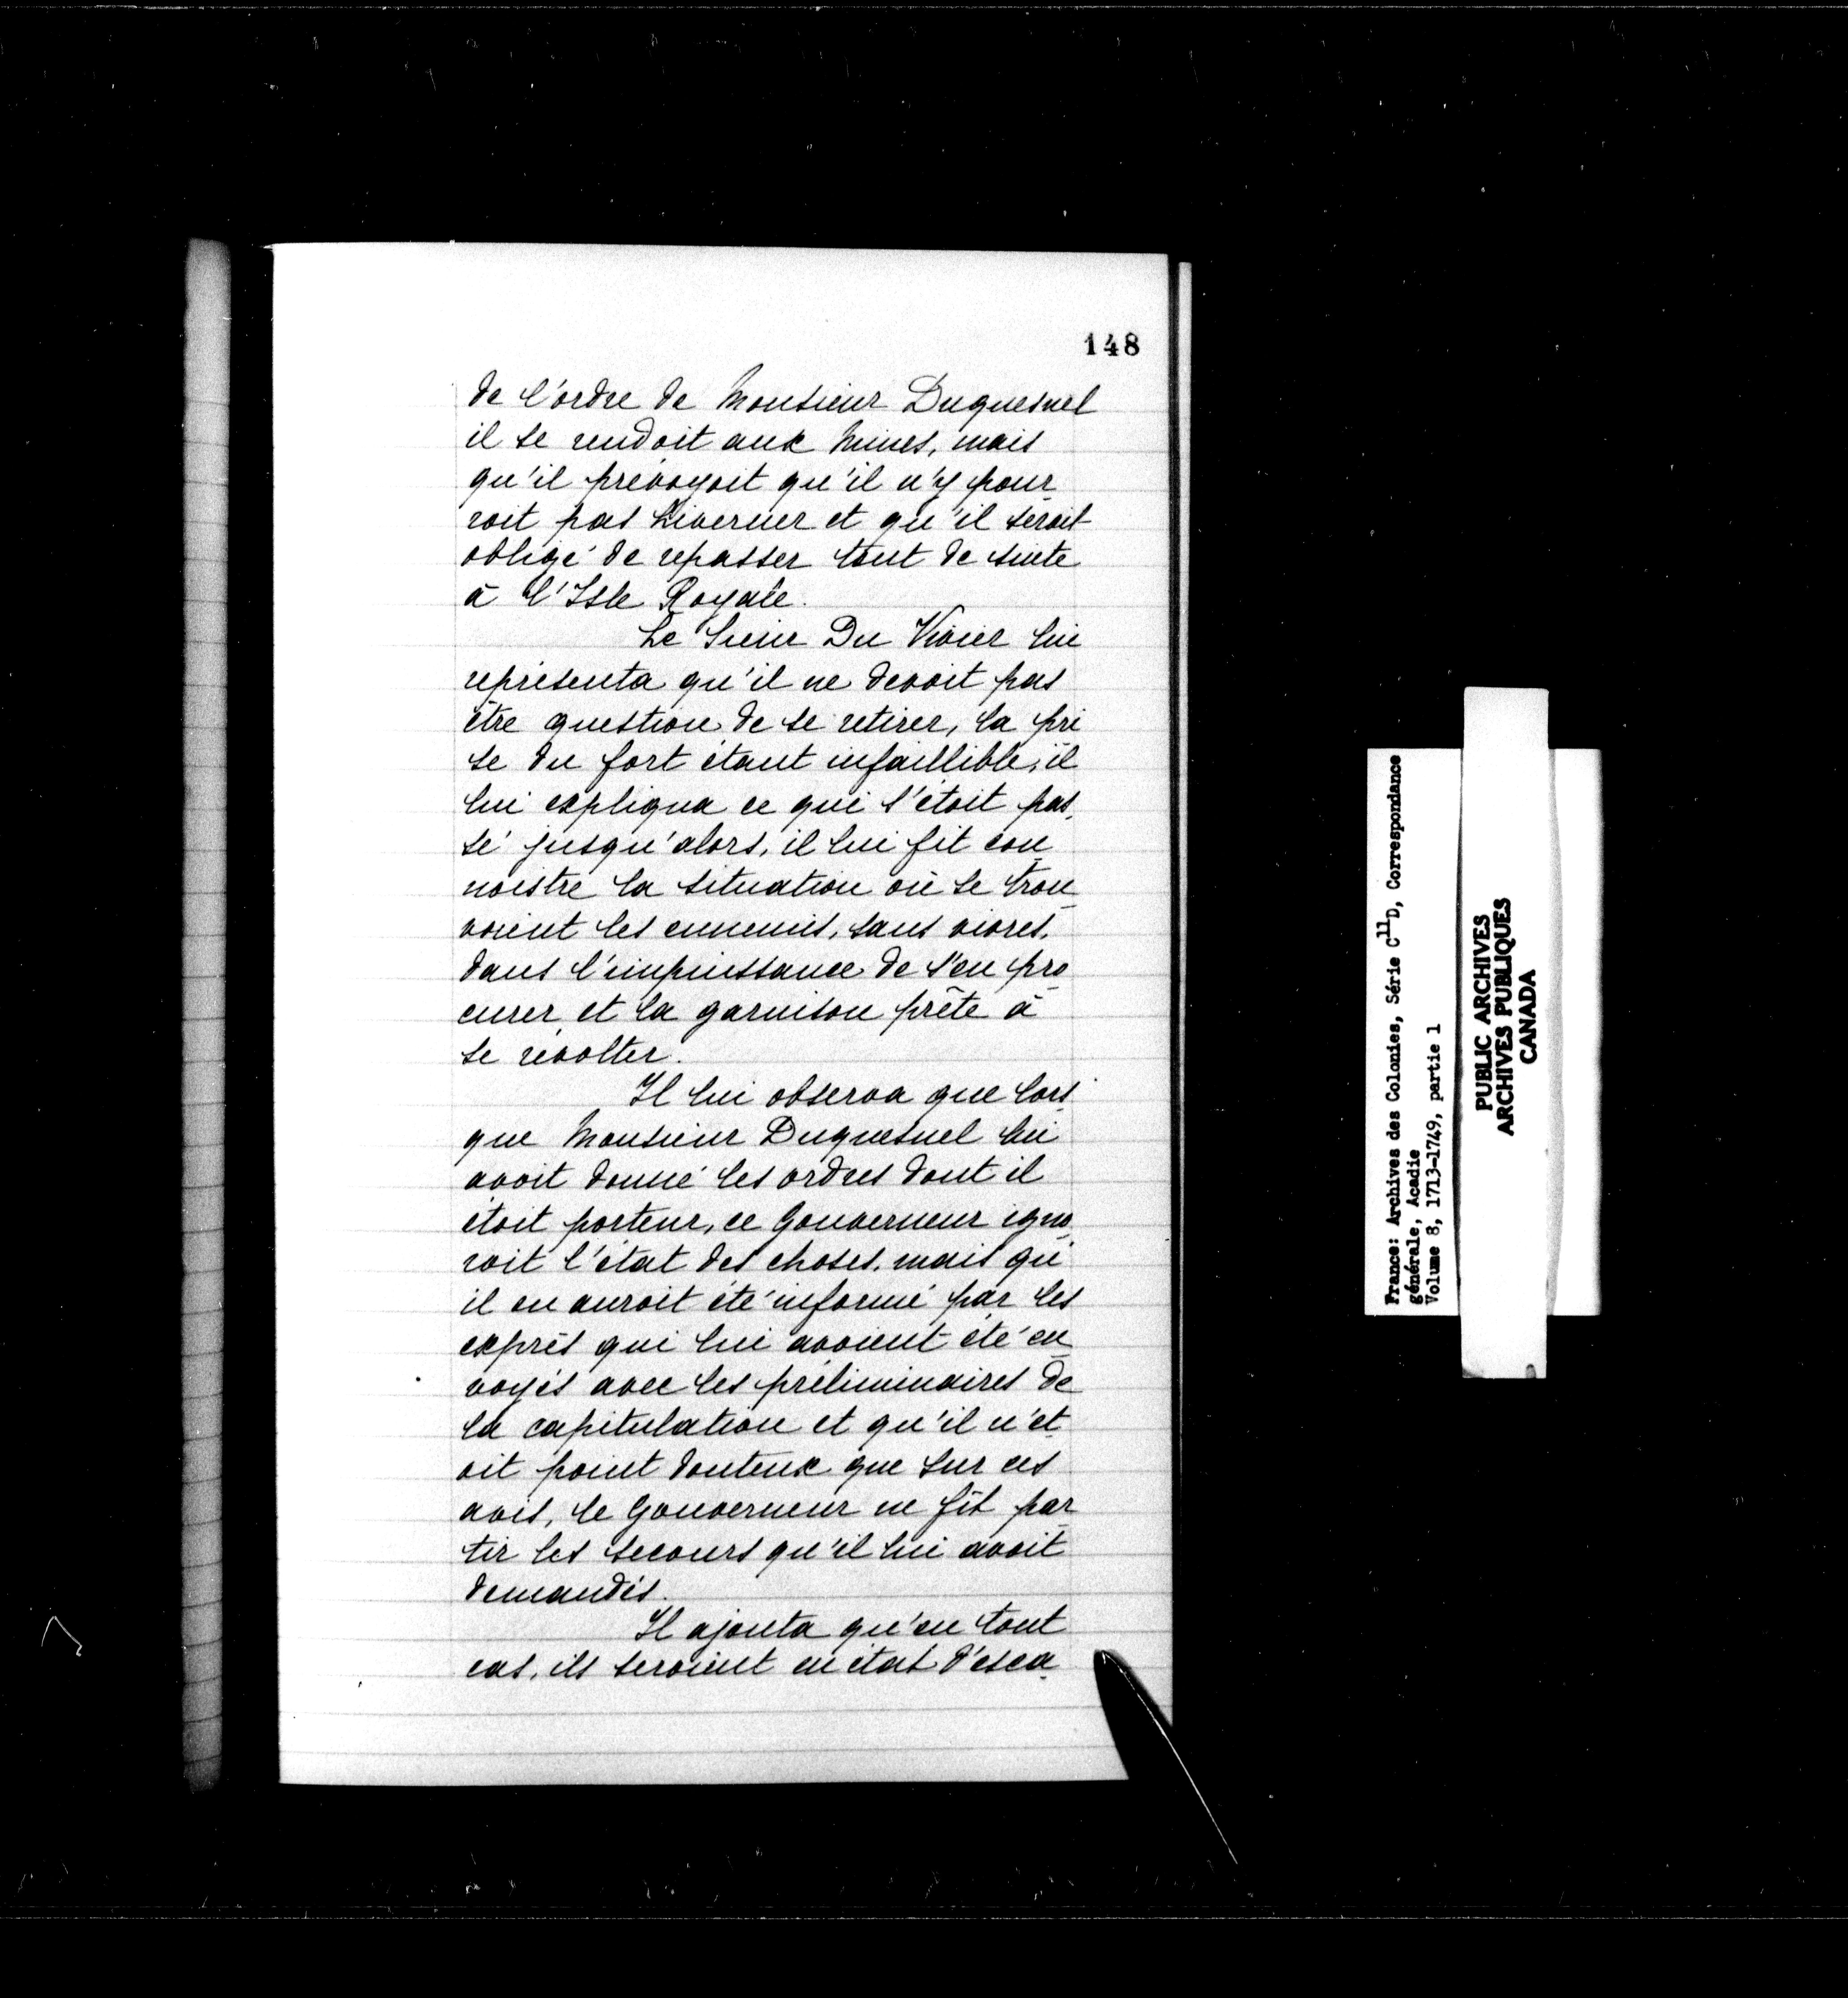 148
de l'ordre de Monsieur Duquesnel
il se rendoit aux Mines, mais
qu'il prévoyoit qu'il n'y pour
roit pas hiverner et qu'il seroit
obligé de repasser tout de suite
à l'Isle Royale.
Le Sieur Du Vivier lui
représenta qu'il ne devoit pas
être question de se retirer, la pri
se du fort étant infaillible, il
lui expliqua ce qui s'étoit pas,
sé jusqu'alors, il lui fit con
noistre la situation où se trou
voient les ennemis, sans vivres,
dans l'impuissance de s'en pro
curer et la garnison prête à
se révolter.
Il lui observa que lors
que Monsieur Duquesnel lui
avoit donné les ordres dont il
étoit porteur, ce Gouverneur igno
roit l'état des choses, mais qu'
il en auroit été informé par les
exprès qui lui avoient été en
voyés avec les préliminaires de
la capitulation et qu'il n'ét
oit point douteux que sur ces
avis, le Gouverneur ne fît par
tir les secours qu'il lui avoit
demandés.
Il ajouta qu'en tout
cas, ils seroient en état d'esca
France: Archives des Colonies, Série C11D, Correspondance
générale, Acadie
Volume 8, 1713-1749, partie 1
PUBLIC ARCHIVES
ARCHIVES PUBLIQUES
CANADA